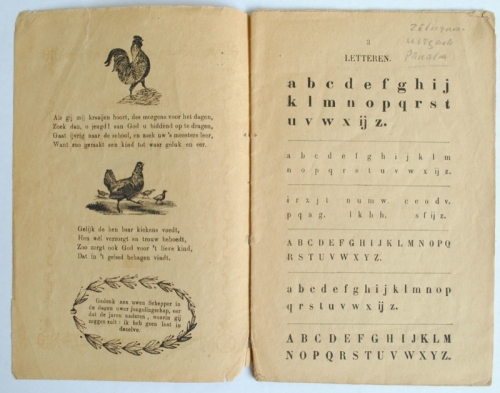 Als gij mij kraaijen hoort, des morgens voor het dagen,
Zoek dan, o jeugd! van God u biddend op te dragen,
Gaat ijvrig naar de school, en zoek uw 's meesters leer,
Want zoo geraakt een kind tot waar geluk en eer.
Gelijk de hen haar kiekens voedt,
Hen wel verzorgt en trouw behoedt,
Zoo zorgt ook God voor 't lieve kind,
Dat in 't gebed behagen vindt.
Gedenk aan uwen Schepper in
de dagen uwer jongelingschap, eer
dat de jaren naderen, waarin gij
zeggen zult: ik heb geen lust in
dezelve.
3
LETTEREN.
a b c d e f g h i j
k l m n o p q r s t
u v w x ij z.
a b c d e f g h i j k l m
n o p q r s t u v w x ij z.
i r x j t n u m w. c e o d v.
p q a g. l k b h. s f ij z.
A B C D E F G H I J K L M N O P Q
R S T U V W X Y Z.
a b c d e f g h i j k l m n o p
q r s t u v w x ij z.
A B C D E F G H I J K L M
N O P Q R S T U V W X Y Z.